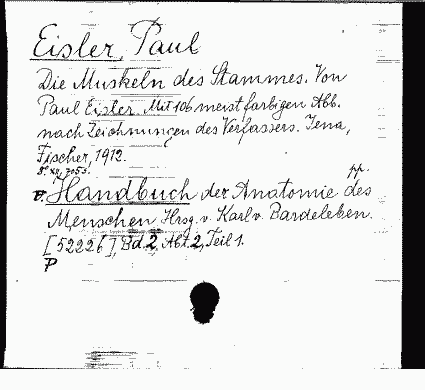 Eisler, Paul
Die Muskeln des Stammes. Von
Paul Eisler. Mit 106 meist farbigen Abb.
nach Zeichnungen des Verfassers. Jena,
Fischer, 1912.
pp.
Handbuch der Anatomie des
Menschen Hrsg. v. Karl v. Bardeleben.
[52226], Bd. 2, Abt. 2, Teil 1.
P